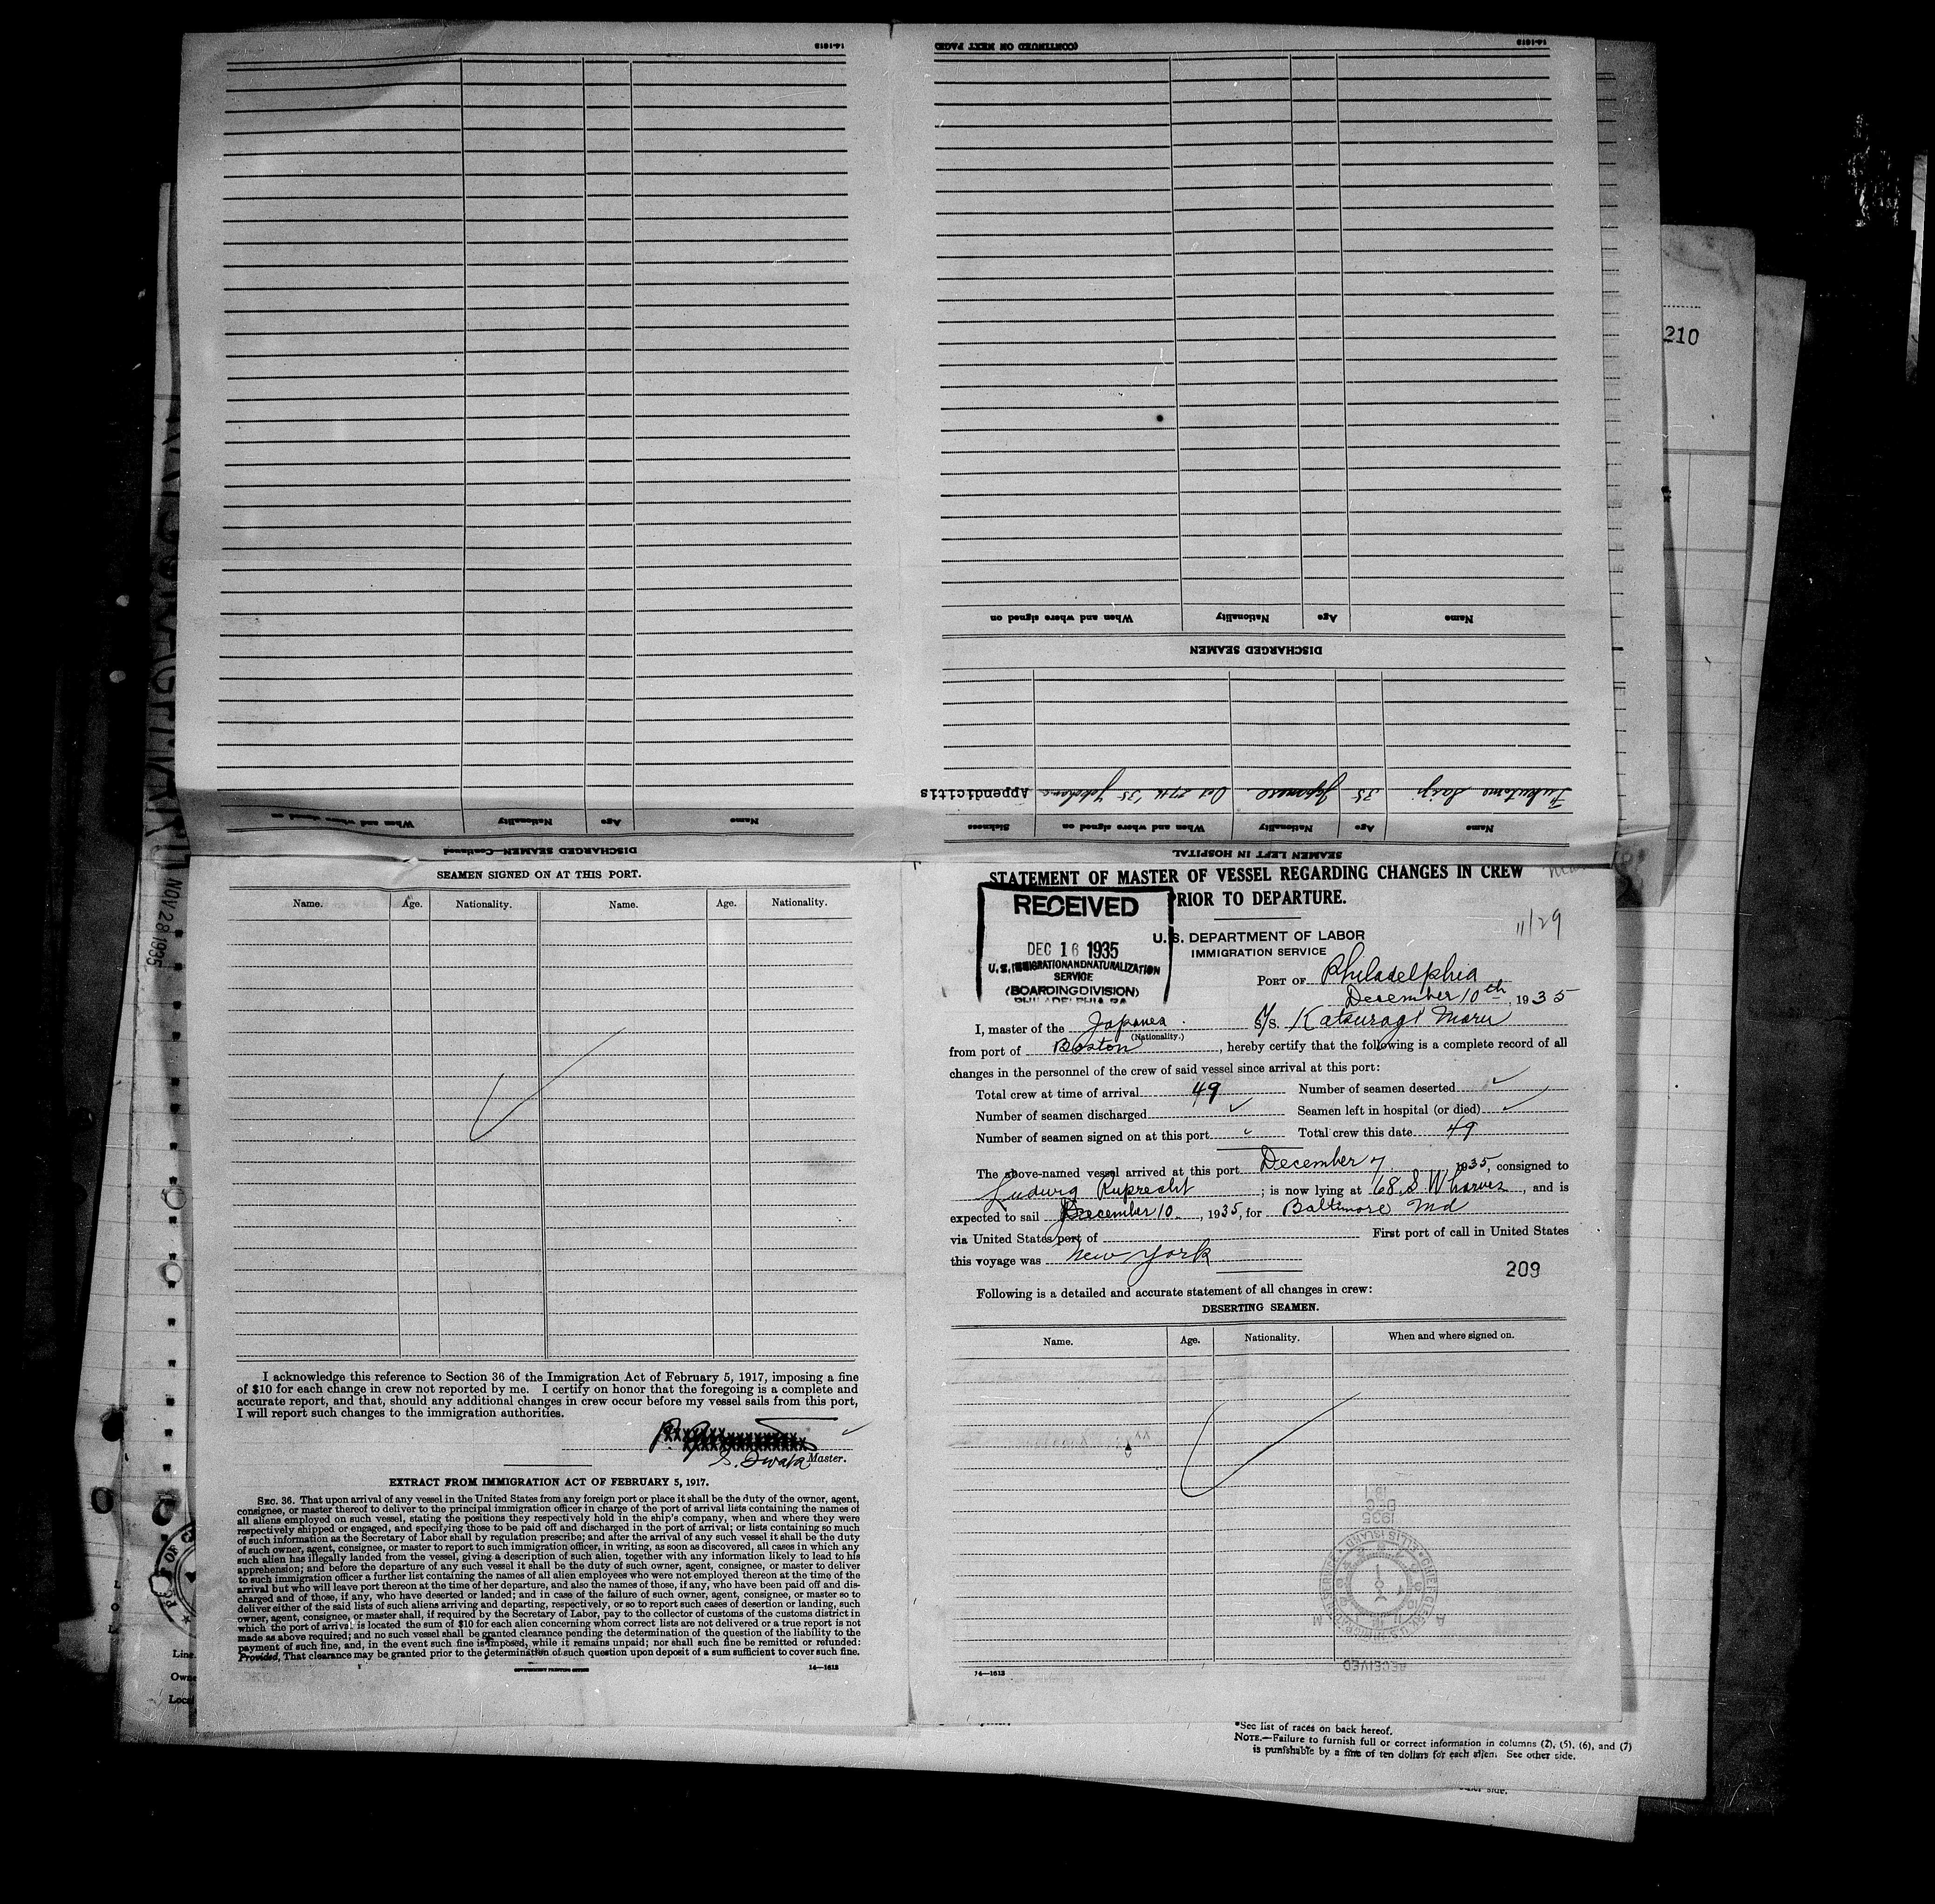 14-1613
(CONTINUED ON NEXT PAGE)
14-1613
210
When and where signed on
Nationality
Age
Name
DISCHARGED SEAMEN
Fukutome Saiji 35 Japanese Oct 27th '35 Yokohama Appendicitis
When and where signed on
Nationality
Age
Name
Sickness
When and where signed on
Nationality
Age
Name
DISCHARGED SEAMEN—Continued
SEAMEN LEFT IN HOSPITAL
NOV 28 1935
SEAMEN SIGNED ON AT THIS PORT.
Name. Age. Nationality. Name. Age. Nationality.
I acknowledge this reference to Section 36 of the Immigration Act of February 5, 1917, imposing a fine
of $10 for each change in crew not reported by me. I certify on honor that the foregoing is a complete and
accurate report, and that, should any additional changes in crew occur before my vessel sails from this port,
I will report such changes to the immigration authorities.
S. Iwata Master.
EXTRACT FROM IMMIGRATION ACT OF FEBRUARY 5, 1917.
SEC. 36. That upon arrival of any vessel in the United States from any foreign port or place it shall be the duty of the owner, agent,
consignee, or master thereof to deliver to the principal immigration officer in charge of the port of arrival lists containing the names of
all aliens employed on such vessel, stating the positions they respectively hold in the ship's company, when and where they were
respectively shipped or engaged, and specifying those to be paid off and discharged in the port of arrival; or lists containing so much
of such information as the Secretary of Labor shall by regulation prescribe; and after the arrival of any such vessel it shall be the duty
of such owner, agent, consignee, or master to report to such immigration officer, in writing, as soon as discovered, all cases in which any
such alien has illegally landed from the vessel, giving a description of such alien, together with any information likely to lead to his
apprehension; and before the departure of any such vessel it shall be the duty of such owner, agent, consignee, or master to deliver
to such immigration officer a further list containing the names of all alien employees who were not employed thereon at the time of the
arrival but who will leave port thereon at the time of her departure, and also the names of those, if any, who have been paid off and dis-
charged and of those, if any, who have deserted or landed; and in case of the failure of such owner, agent, consignee, or master so to
deliver either of the said lists of such aliens arriving and departing, respectively, or so to report such cases of desertion or landing, such
owner, agent, consignee, or master shall, if required by the Secretary of Labor, pay to the collector of customs of the customs district in
which the port of arrival is located the sum of $10 for each alien concerning whom correct lists are not delivered or a true report is not
made as above required; and no such vessel shall be granted clearance pending the determination of the question of the liability to the
payment of such fine, and, in the event such fine is imposed, while it remains unpaid; nor shall such fine be remitted or refunded:
Provided, That clearance may be granted prior to the determination of such question upon deposit of a sum sufficient to cover such fine.
GOVERNMENT PRINTING OFFICE
14—1613
STATEMENT OF MASTER OF VESSEL REGARDING CHANGES IN CREW
PRIOR TO DEPARTURE.
RECEIVED
DEC 16 1935
U.S. IMMIGRATION AND NATURALIZATION
SERVICE
(BOARDING DIVISION)
PHILADELPHIA PA
11/29
U.S. DEPARTMENT OF LABOR
IMMIGRATION SERVICE
PORT OF Philadelphia
December 10th, 1935
I, master of the Japanes S/S. Katsuragi Maru
(Nationality.)
from port of Boston, hereby certify that the following is a complete record of all
changes in the personnel of the crew of said vessel since arrival at this port:
Total crew at time of arrival 49 Number of seamen deserted
Number of seamen discharged Seamen left in hospital (or died)
Number of seamen signed on at this port Total crew this date 49
The above-named vessel arrived at this port December 7 1935, consigned to
Ludwig Ruprecht; is now lying at 68 S Wharves, and is
expected to sail December 10, 1935, for Baltimore Md
via United States port of First port of call in United States
this voyage was New York
209
Following is a detailed and accurate statement of all changes in crew:
DESERTING SEAMEN.
Name. Age. Nationality. When and where signed on.
1935
DEC
RECEIVED
14—1613
Line
Owne
Local
*See list of races on back hereof.
NOTE.—Failure to furnish full or correct information in columns (2), (5), (6), and (7)
is punishable by a fine of ten dollars for each alien. See other side.